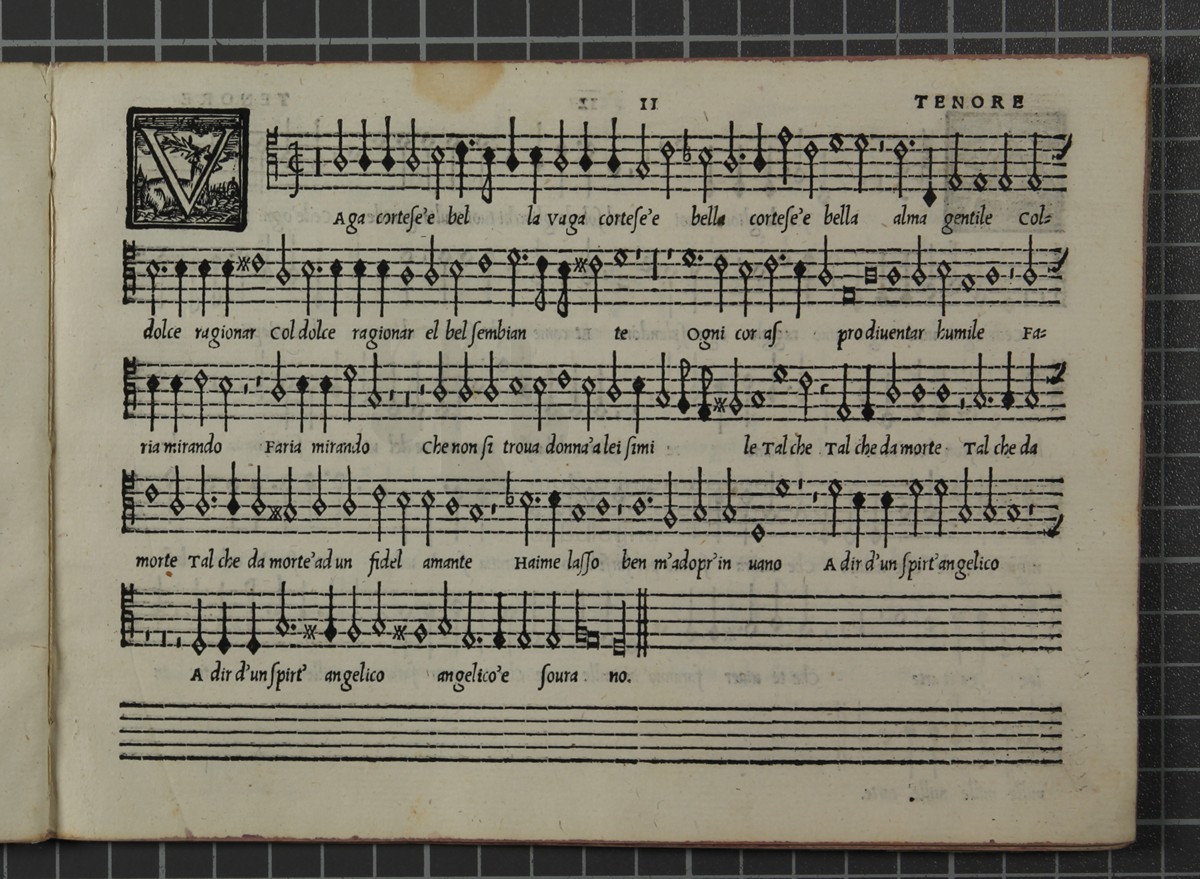 II TENORE
VAga cortese'e bel la Vaga cortese'e bella cortese'e bella alma gentile Col=
dolce ragionar Col dolce ragionar el bel sembian te Ogni cor as pro diuentar humile Fa=
ria mirando Faria mirando Che non si troua donna'a lei simi le Tal che Tal che da morte Tal che da
morte Tal che da morte'ad un fidel amante Haime lasso ben m'adopr'in uano A dir d'un spirt'angelico
A dir d'un spirt' angelico angelico'e soura no.